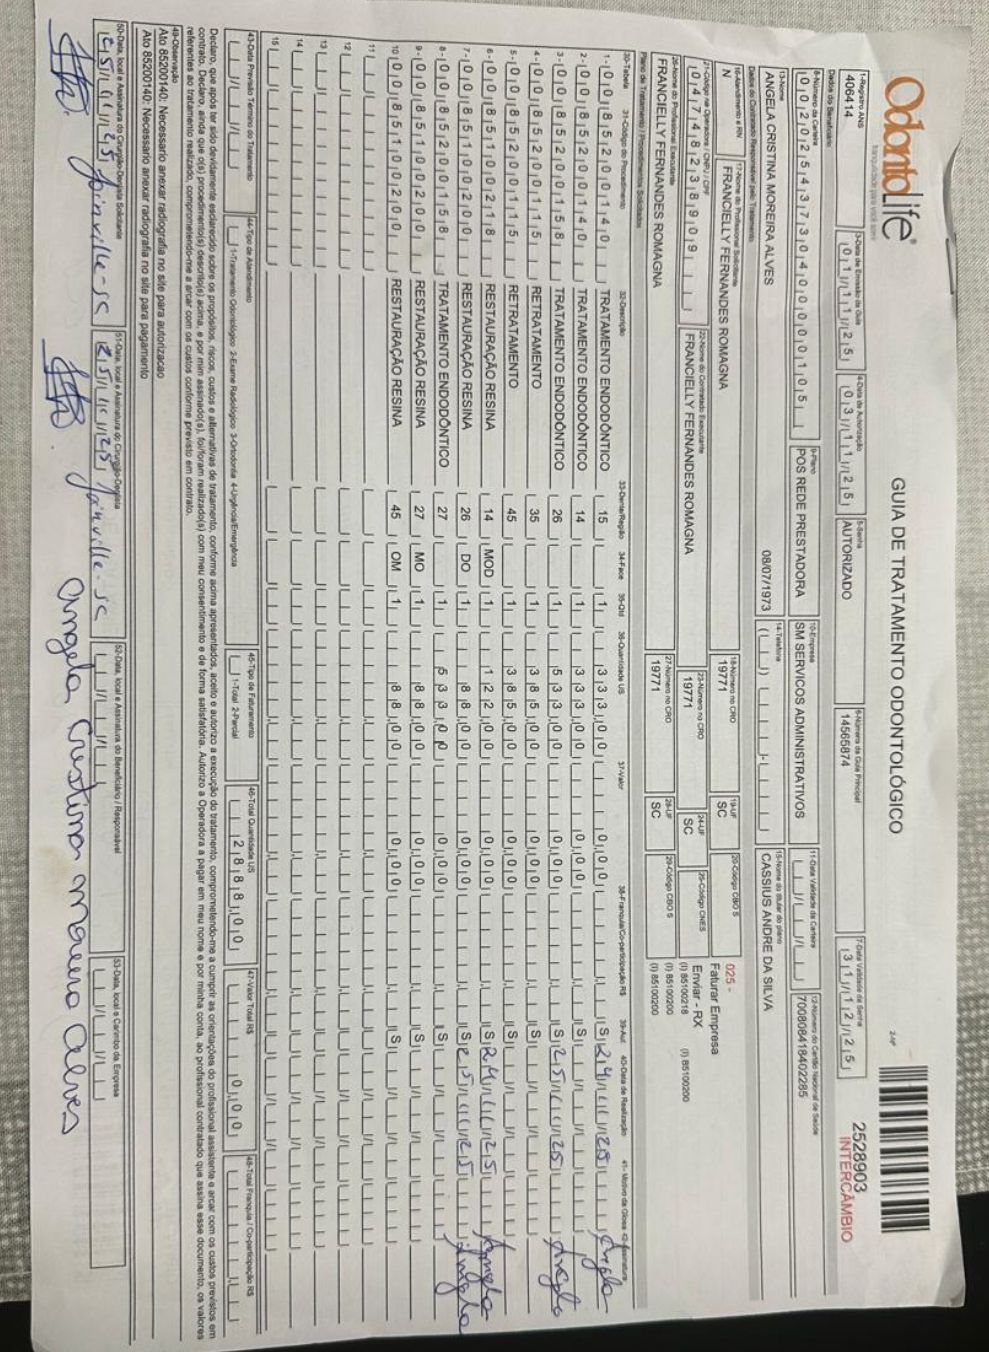 OdontoLife®
tranquilidade para você sorrir
GUIA DE TRATAMENTO ODONTOLÓGICO
2528903
INTERCÂMBIO
1-Registro ANS
406414
3-Data de Emissão da Guia
01/11/25
4-Data de Autorização
03/11/25
5-Senha
AUTORIZADO
6-Número da Guia Principal
14565874
7-Data Validade da Senha
31/12/25
Dados do Beneficiário
8-Número da Carteira
00202543730400000105
9-Plano
POS REDE PRESTADORA
10-Empresa
SM SERVICOS ADMINISTRATIVOS
11-Data Validade da Carteira
12-Número do Cartão Nacional de Saúde
700808418402285
13-Nome
ANGELA CRISTINA MOREIRA ALVES
08/07/1973
14-Telefone
15-Nome do titular do plano
CASSIUS ANDRE DA SILVA
Dados do Contratado Responsável pelo Tratamento
16-Atendimento a RN
N
17-Nome do Profissional Solicitante
FRANCIELLY FERNANDES ROMAGNA
18-Número no CRO
19771
19-UF
SC
20-Código CBO S
025 -
Faturar Empresa
Enviar - RX
(I) 85100218 (I) 85100200
(I) 85100200
(I) 85100200
21-Código na Operadora / CNPJ / CPF
04748238909
22-Nome do Contratado Executante
FRANCIELLY FERNANDES ROMAGNA
23-Número no CRO
19771
24-UF
SC
25-Código CNES
26-Nome do Profissional Executante
FRANCIELLY FERNANDES ROMAGNA
27-Número no CRO
19771
28-UF
SC
29-Código CBO S
Plano de Tratamento / Procedimentos Solicitados
30-Tabela 31-Código do Procedimento 32-Descrição 33-Dente/Região 34-Face 35-Qtd 36-Quantidade US 37-Valor 38-Franquia/Co-participação R$ 39-Aut. 40-Data de Realização 41- Motivo da Glosa 42-Assinatura
1- 00 85200140 TRATAMENTO ENDODÔNTICO 15 1 333,00 0,00 S 24/11/25 Angela
2- 00 85200140 TRATAMENTO ENDODÔNTICO 14 1 333,00 0,00 S
3- 00 85200158 TRATAMENTO ENDODÔNTICO 26 1 533,00 0,00 S 25/11/25 Angela
4- 00 85200115 RETRATAMENTO 35 1 385,00 0,00 S
5- 00 85200115 RETRATAMENTO 45 1 385,00 0,00 S
6- 00 85100218 RESTAURAÇÃO RESINA 14 MOD 1 122,00 0,00 S 24/11/25 Angela
7- 00 85100200 RESTAURAÇÃO RESINA 26 DO 1 88,00 0,00 S 25/11/25 Angela
8- 00 85200158 TRATAMENTO ENDODÔNTICO 27 1 533,00 0,00 S
9- 00 85100200 RESTAURAÇÃO RESINA 27 MO 1 88,00 0,00 S
10- 00 85100200 RESTAURAÇÃO RESINA 45 OM 1 88,00 0,00 S
11-
12-
13-
14-
15-
43-Data Previsão Término do Tratamento
44-Tipo de Atendimento
1-Tratamento Odontológico 2-Exame Radiológico 3-Ortodontia 4-Urgência/Emergência
45-Tipo de Faturamento
1-Total 2-Parcial
46-Total Quantidade US
2888,00
47-Valor Total R$
0,00
48-Total Franquia / Co-participação R$
Declaro, que após ter sido devidamente esclarecido sobre os propósitos, riscos, custos e alternativas de tratamento, conforme acima apresentados, aceito e autorizo a execução do tratamento, comprometendo-me a cumprir as orientações do profissional assistente e arcar com os custos previstos em
contrato. Declaro, ainda que o(s) procedimento(s) descrito(s) acima, e por mim assinado(s), foi/foram realizado(s) com meu consentimento e de forma satisfatória. Autorizo a Operadora a pagar em meu nome e por minha conta, ao profissional contratado que assina esse documento, os valores
referentes ao tratamento realizado, comprometendo-me a arcar com os custos conforme previsto em contrato.
49-Observação
Ato 85200140: Necessario anexar radiografia no site para autorizacao
Ato 85200140: Necessario anexar radiografia no site para pagamento
50-Data, local e Assinatura do Cirurgião-Dentista Solicitante
25/11/25 Joinville-SC
51-Data, local e Assinatura do Cirurgião-Dentista
25/11/25 Joinville-SC
52-Data, local e Assinatura do Beneficiário / Responsável
53-Data, local e Carimbo da Empresa
Angela Cristina Moreira Alves